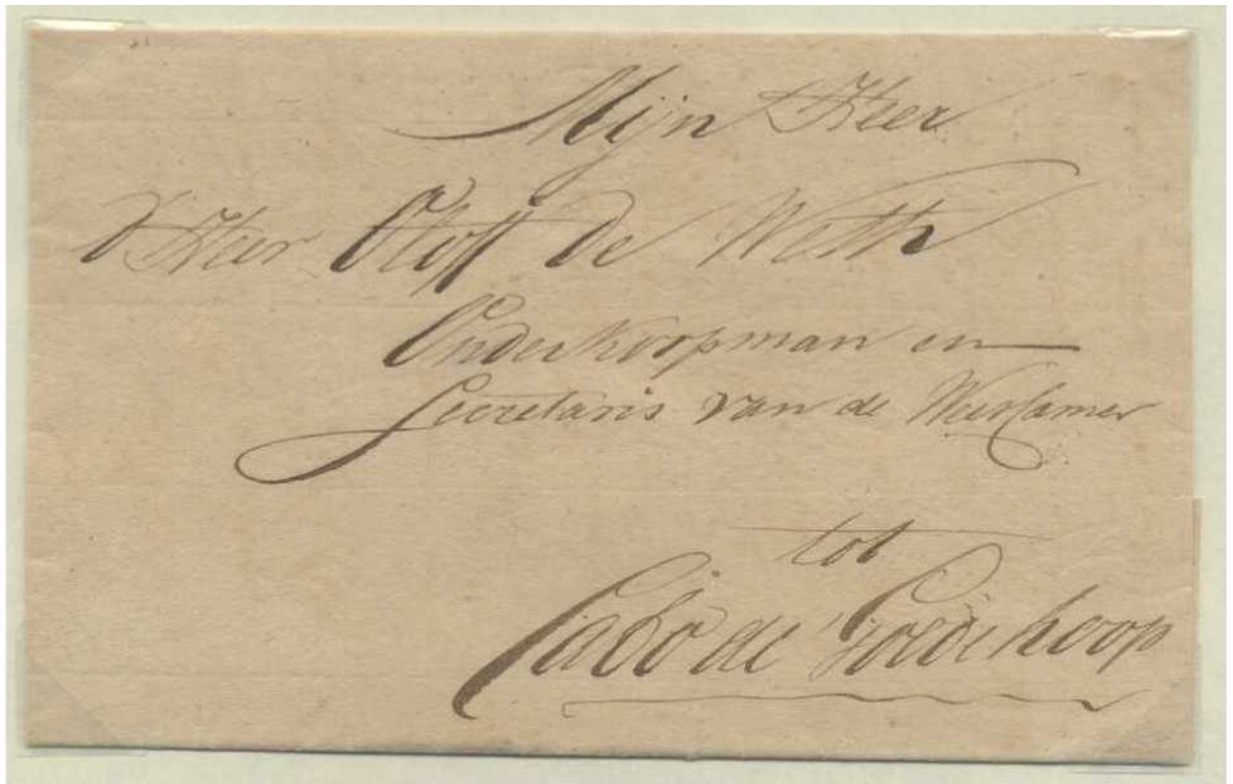 Mijn Heer
d'Heer Olof de Weth
Onderkoopman en
Secretaris van de Weescamer
tot
Cabo de Goede hoop